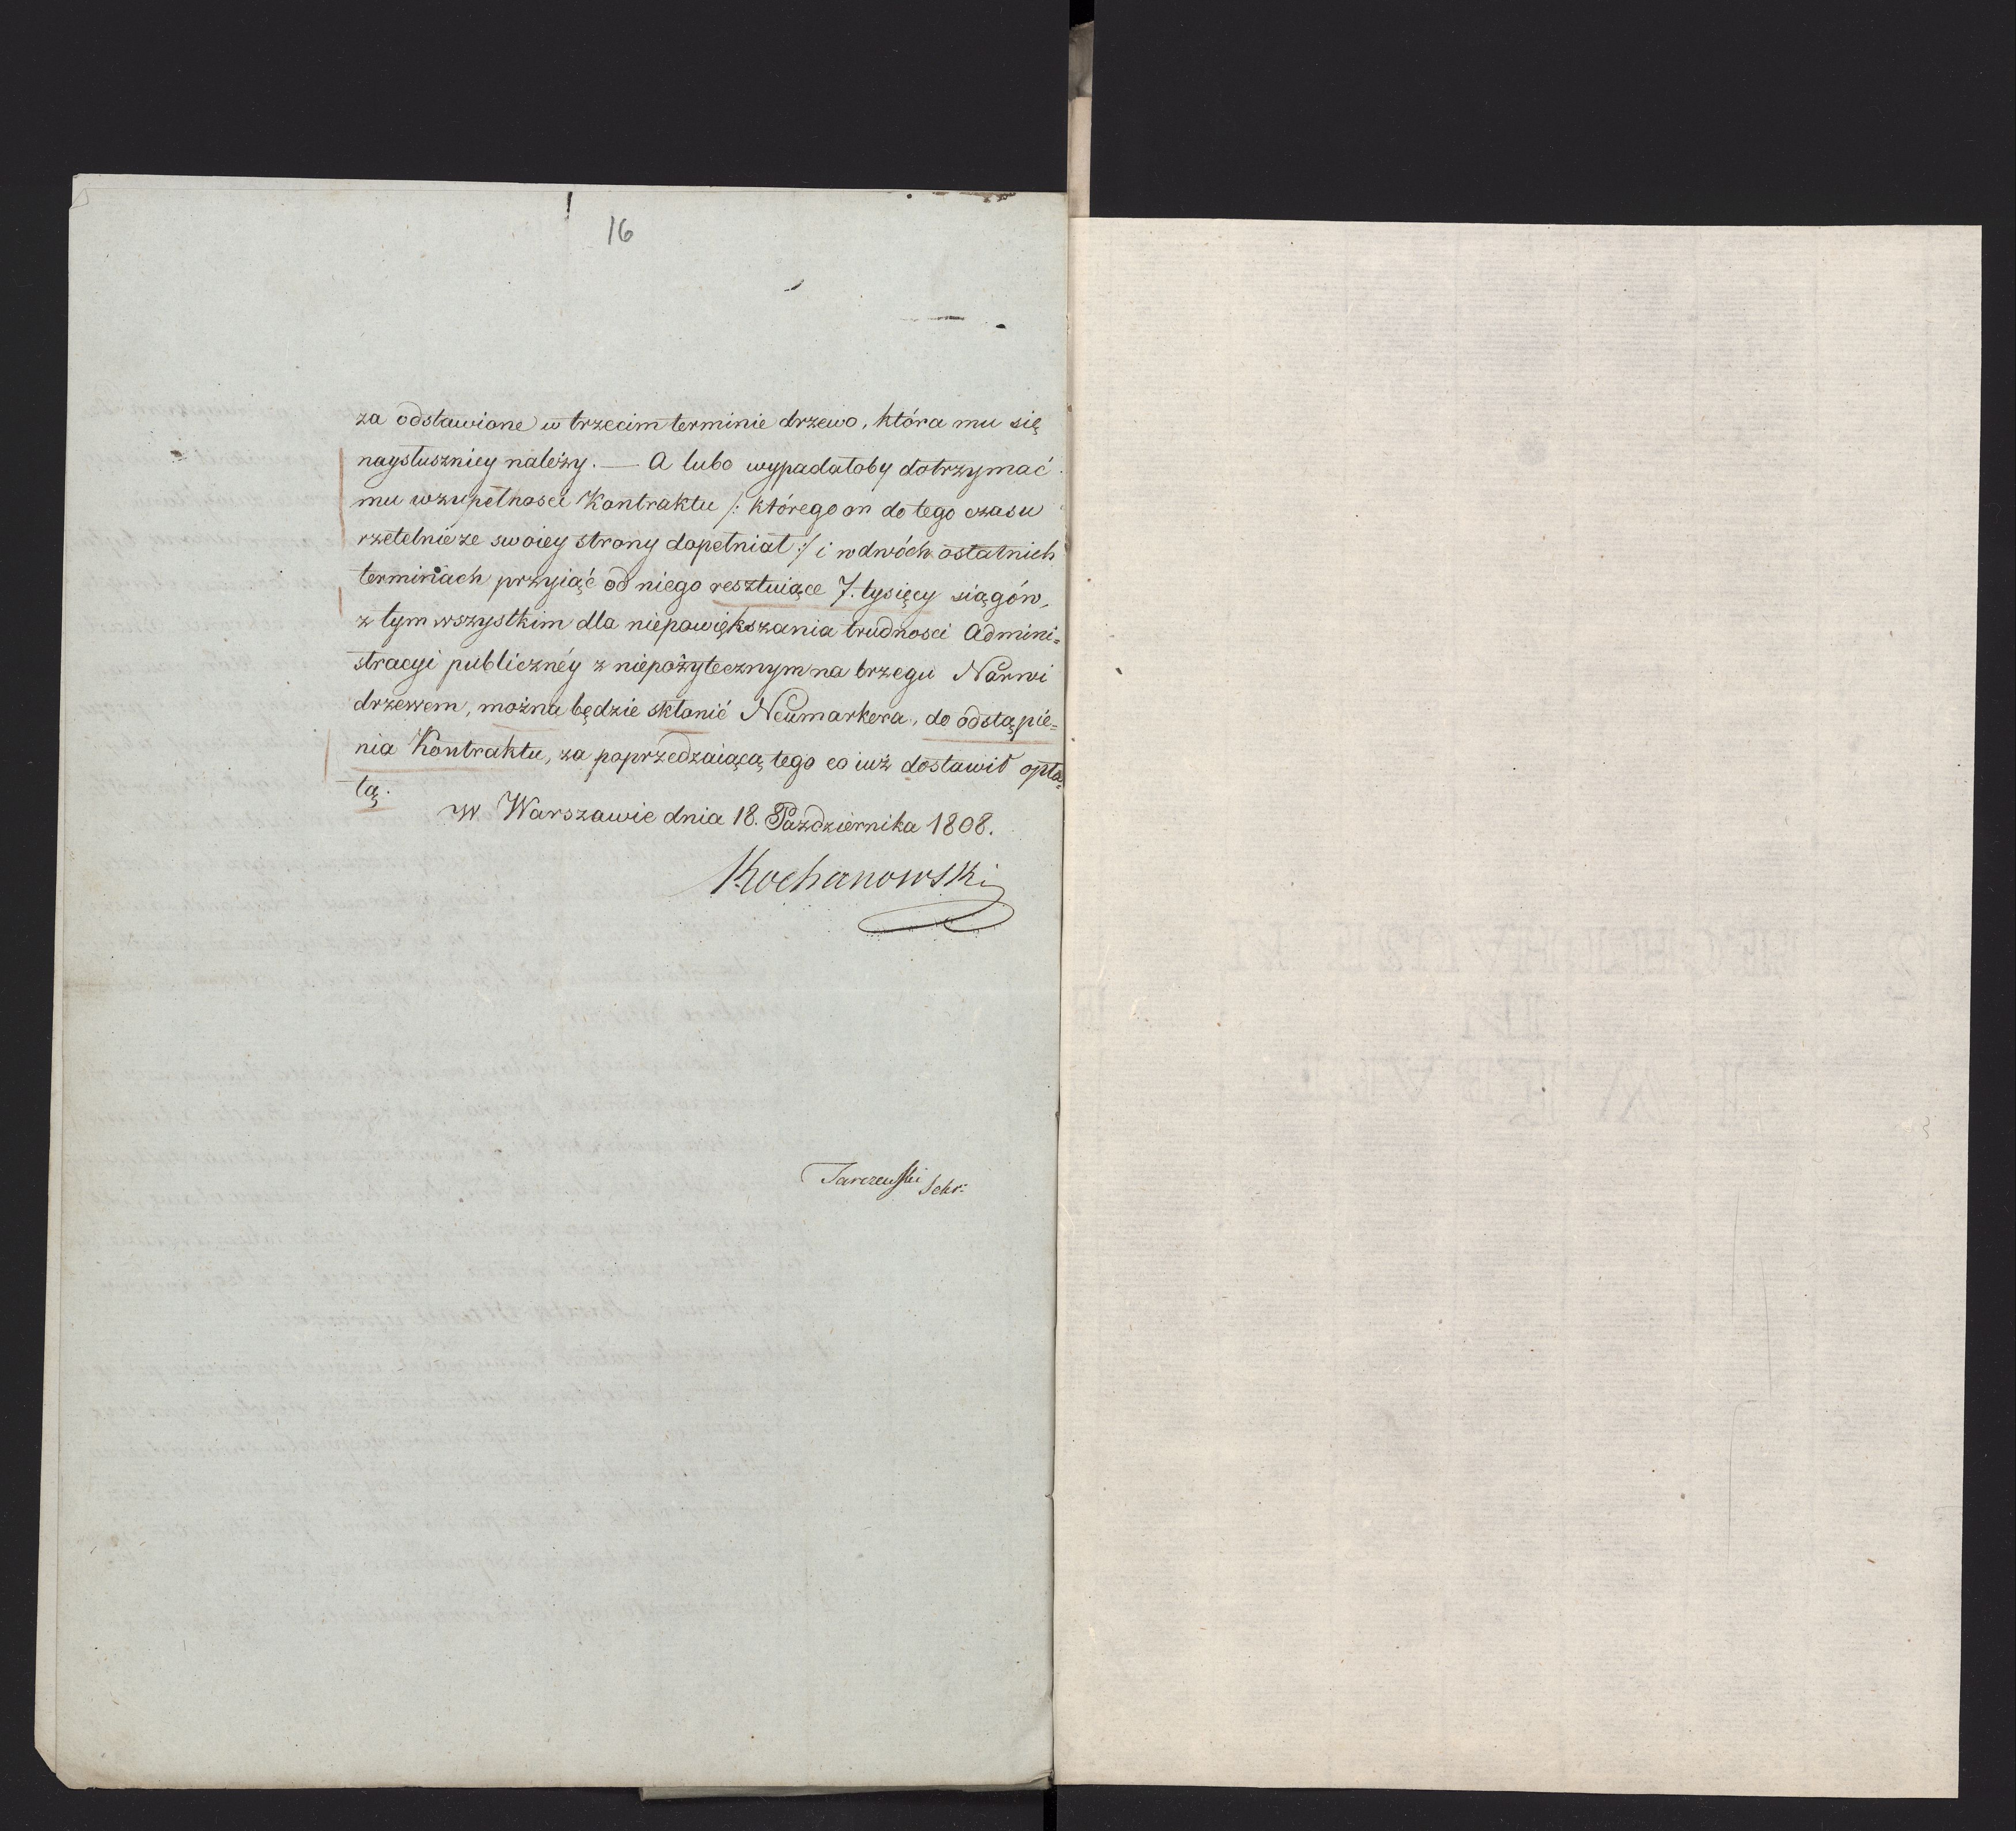 16
za odstawione w trzecim terminie drzewo, która mu się
naysłuszniey należy. — A lubo wypadałoby dotrzymać
mu wzupełnosci Kontraktu /: którego on do tego czasu
rzetelnie ze swoiey strony dopełniał :/ i w dwóch ostatnich
terminach przyiąć od niego resztuiące 7. tysięcy siągów,
z tym wszystkim dla niepowiększania trudnosci Admini=
stracyi publicznéy z niepożytecznym na brzegu Narwi
drzewem, można będzie skłonić Neumarkera, do odstąpie=
nia Kontraktu, za poprzedzaiącą tego co iuż dostawił opła=
tą.
w Warszawie dnia 18. Pazdziernika 1808.
Kochanowski
Jarczewski Sekr: